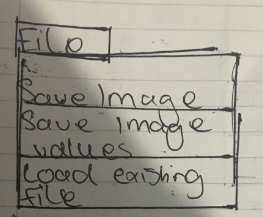 File
Save Image
Save image
values
Load existing
File